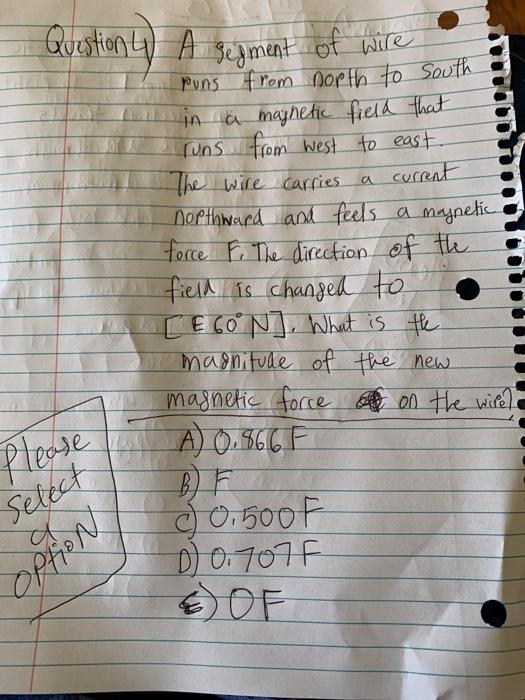 Question 4) A segment of wire
runs from north to south
in a magnetic field that
runs from west to east.
The wire carries a current
northward and feels a magnetic
force F. The direction of the
field is changed to
[E 60° N]. What is the
magnitude of the new
magnetic force on the wire?
A) 0.866 F
B) F
C) 0.500 F
D) 0.707 F
E) 0F
Please
select
a
OPTION